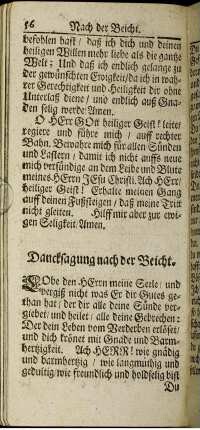 56 Nach der Beicht.
befohlen hast / daß ich dich und deinen
heiligen Willen mehr liebe als die gantze
Welt; Und daß ich endlich gelange zu
der gewünschten Ewigkeit / da ich in wah-
rer Gerechtigkeit und Heiligkeit dir ohne
Unterlaß diene / und endlich auß Gna-
den selig werde Amen.
O HErr GOtt heiliger Geist! leite /
regiere und führe mich / auff rechter
Bahn. Bewahre mich für allen Sünden
und Lastern / damit ich nicht auffs neue
mich versündige an dem Leibe und Blute
meines HErrn JEsu Christi. Ach HErr /
heiliger Geist! Erhalte meinen Gang
auff deinen Fußsteigen / daß meine Trit
nicht gleiten. Hilff mir aber zur ewi-
gen Seligkeit Amen.
Dancksagung nach der Beicht.
LObe den HErrn meine Seele / und
vergiß nicht was Er dir Gutes ge-
than hat / der dir alle deine Sünde ver-
giebet / und heilet / alle deine Gebrechen:
Der dein Leben vom Verderben erlöset /
und dich krönet mit Gnade und Barm-
hertzigkeit. Ach HERR! wie gnädig
und barmhertzig / wie langmüthig und
gedultig / wie freundlich und holdselig bist
Du